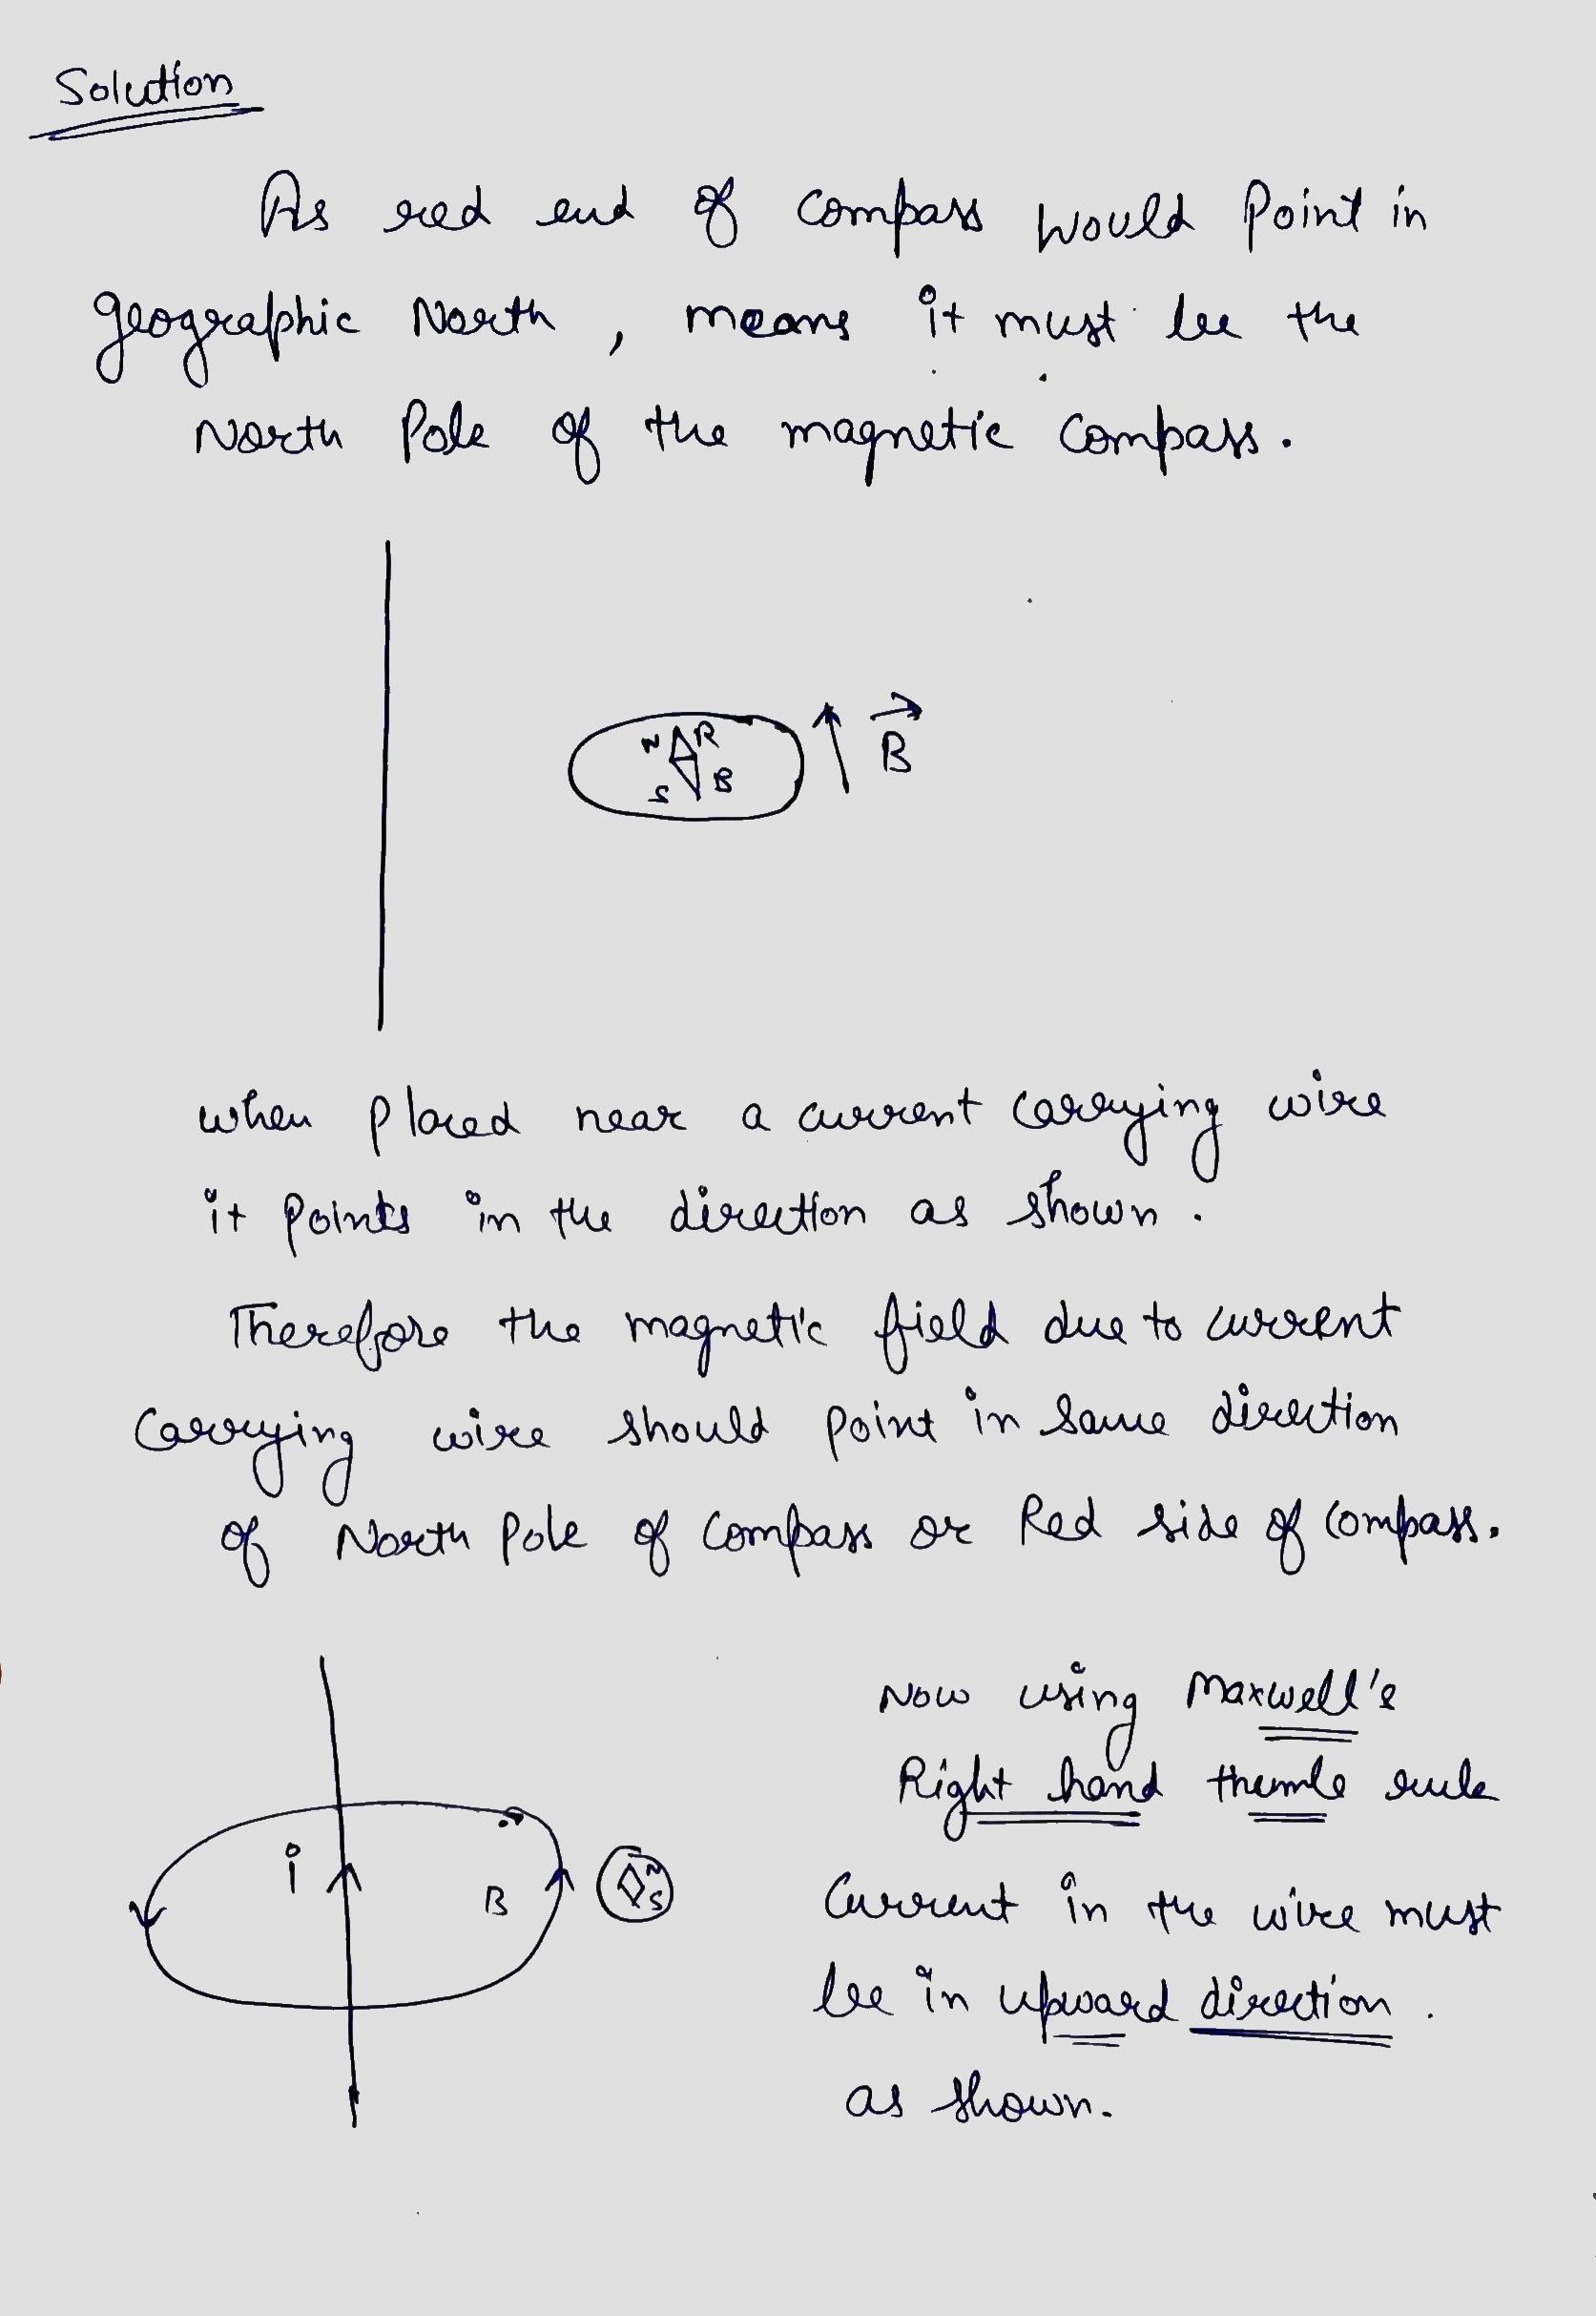 Solution
As red end of compass would Point in
geographic North, means it must be the
North Pole of the magnetic compass.
N R
S B
B
when placed near a current carrying wire
it points in the direction as shown.
Therefore the magnetic field due to current
carrying wire should point in same direction
of North Pole of Compass or Red side of compass.
Now using Maxwell's
Right hand thumb rule
i
B
N
S
Current in the wire must
be in upward direction.
as shown.